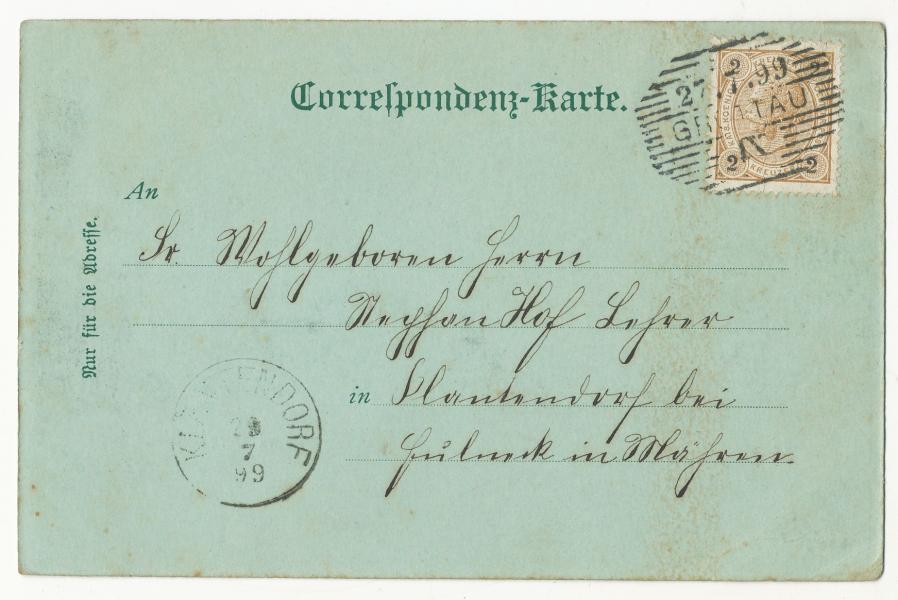 Correspondenz-Karte.
2 2
27. 7. 99
2 KREUZER 2
An
Nur für die Adresse.
Sr. Wohlgeboren Herrn
Stephan Hof Lehrer
in Klantendorf bei
Fulnek in Mähren
KLANTENDORF
7
99